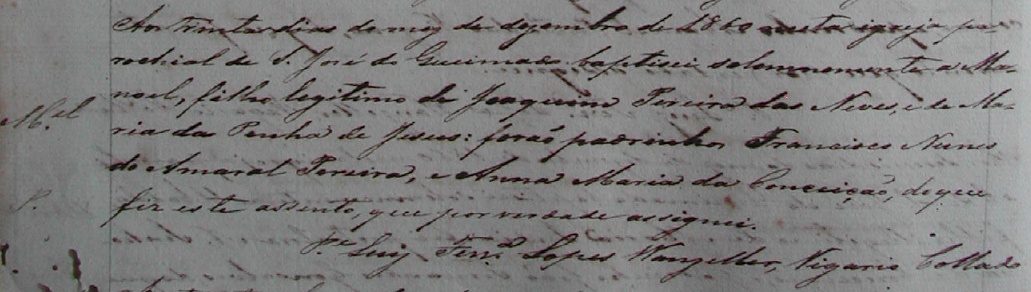 Aos trinta dias do mez de dezembro de 1860 nesta igreja pa-
rochial de S. José do Queimado baptisei solemnemente a Ma-
noel, filho legitimo de Joaquim Pereira das Neves, e de Ma-
M.el
ria da Penha de Jesus: forão padrinhos Francisco Nunes
do Amaral Pereira, e Anna Maria da Conceição, do que
P.
fiz este assento, que por verdade assignei.
P.e Luiz Fen.do Lopes Wanzeller, Vigario Collado